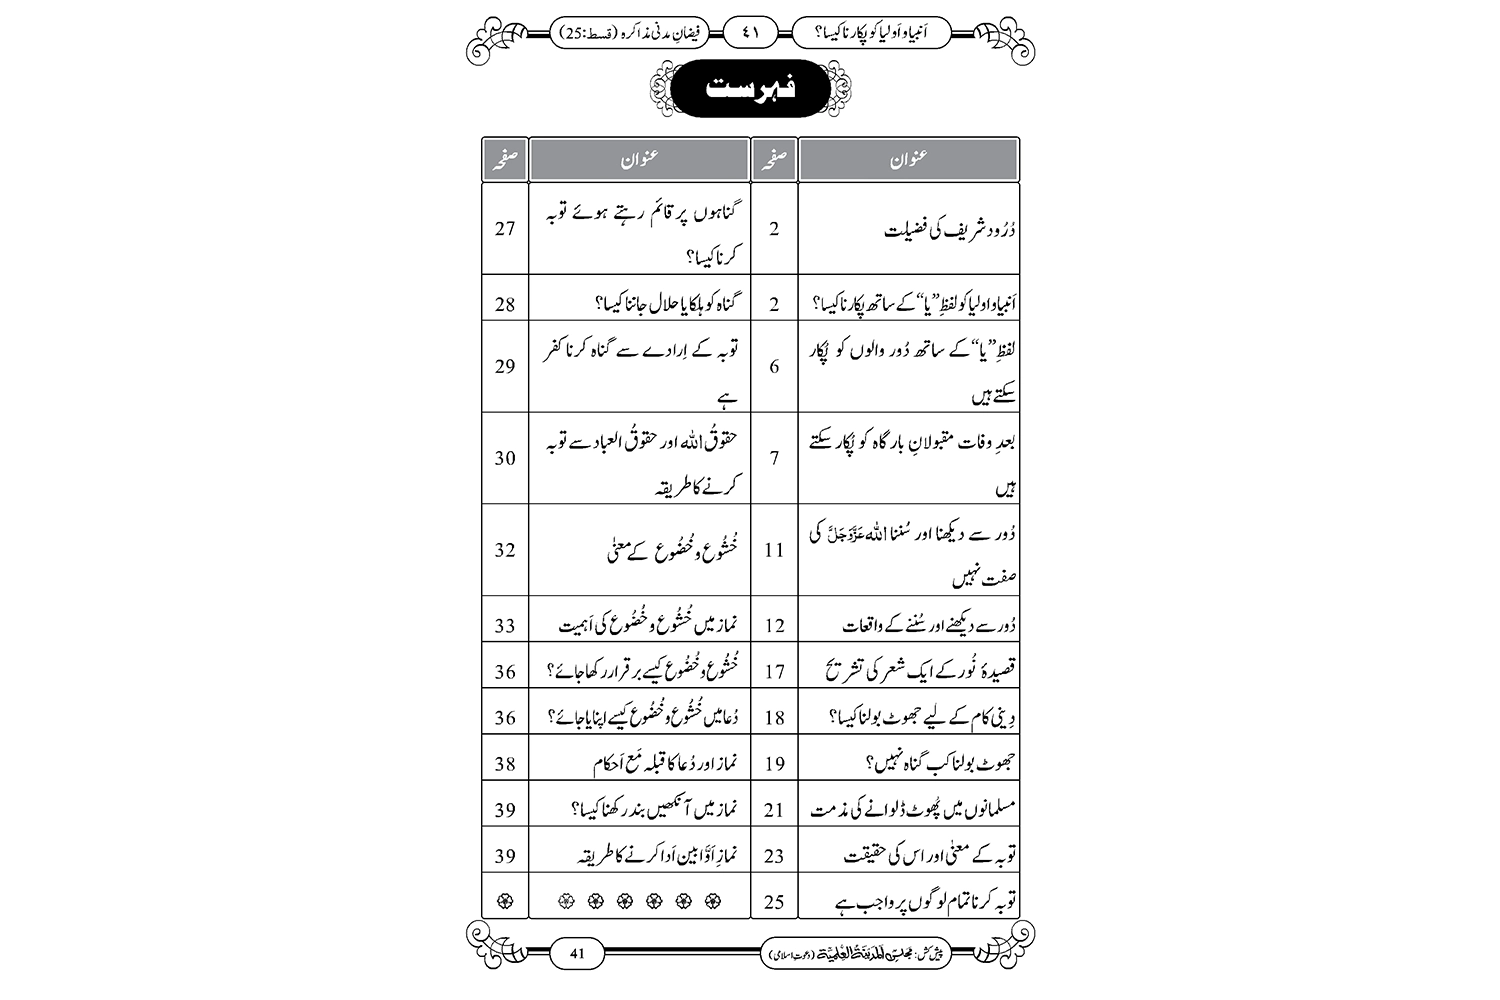 اَنبیا و اَولیا کو پکارنا کیسا؟ ٤١ فیضانِ مدنی مذاکرہ (قسط:25)
فہرست
عنوان صفحہ عنوان صفحہ
دُرُود شریف کی فضیلت 2 گناہوں پر قائم رہتے ہوئے توبہ
کرنا کیسا؟ 27
اَنبیا و اولیا کو لفظِ ”یا“ کے ساتھ پکارنا کیسا؟ 2 گناہ کو ہلکا یا حلال جاننا کیسا؟ 28
لفظِ ”یا“ کے ساتھ دُور والوں کو پُکار
سکتے ہیں 6 توبہ کے اِرادے سے گناہ کرنا کفر
ہے 29
بعدِ وفات مقبولانِ بارگاہ کو پُکار سکتے
ہیں 7 حقوقُ اللہ اور حقوقُ العباد سے توبہ
کرنے کا طریقہ 30
دُور سے دیکھنا اور سُننا اللہ عَزَّوَجَلَّ کی
صفت نہیں 11 خُشُوع و خُضُوع کے معنیٰ 32
دُور سے دیکھنے اور سُننے کے واقعات 12 نماز میں خُشُوع و خُضُوع کی اَہمیت 33
قصیدۂ نُور کے ایک شعر کی تشریح 17 خُشُوع و خُضُوع کیسے برقرار رکھا جائے؟ 36
دِینی کام کے لیے جھوٹ بولنا کیسا؟ 18 دُعا میں خُشُوع و خُضُوع کیسے اپنایا جائے؟ 36
جھوٹ بولنا کب گناہ نہیں؟ 19 نماز اور دُعا کا قبلہ مَع اَحکام 38
مسلمانوں میں پُھوٹ ڈلوانے کی مذمت 21 نماز میں آنکھیں بند رکھنا کیسا؟ 39
توبہ کے معنیٰ اور اس کی حقیقت 23 نمازِ اَوَّابین اَدا کرنے کا طریقہ 39
توبہ کرنا تمام لوگوں پر واجب ہے 25
پیش کش: مجلس اَلمَدِیْنَۃُ الْعِلْمِیَّۃ (دعوتِ اسلامی) 41